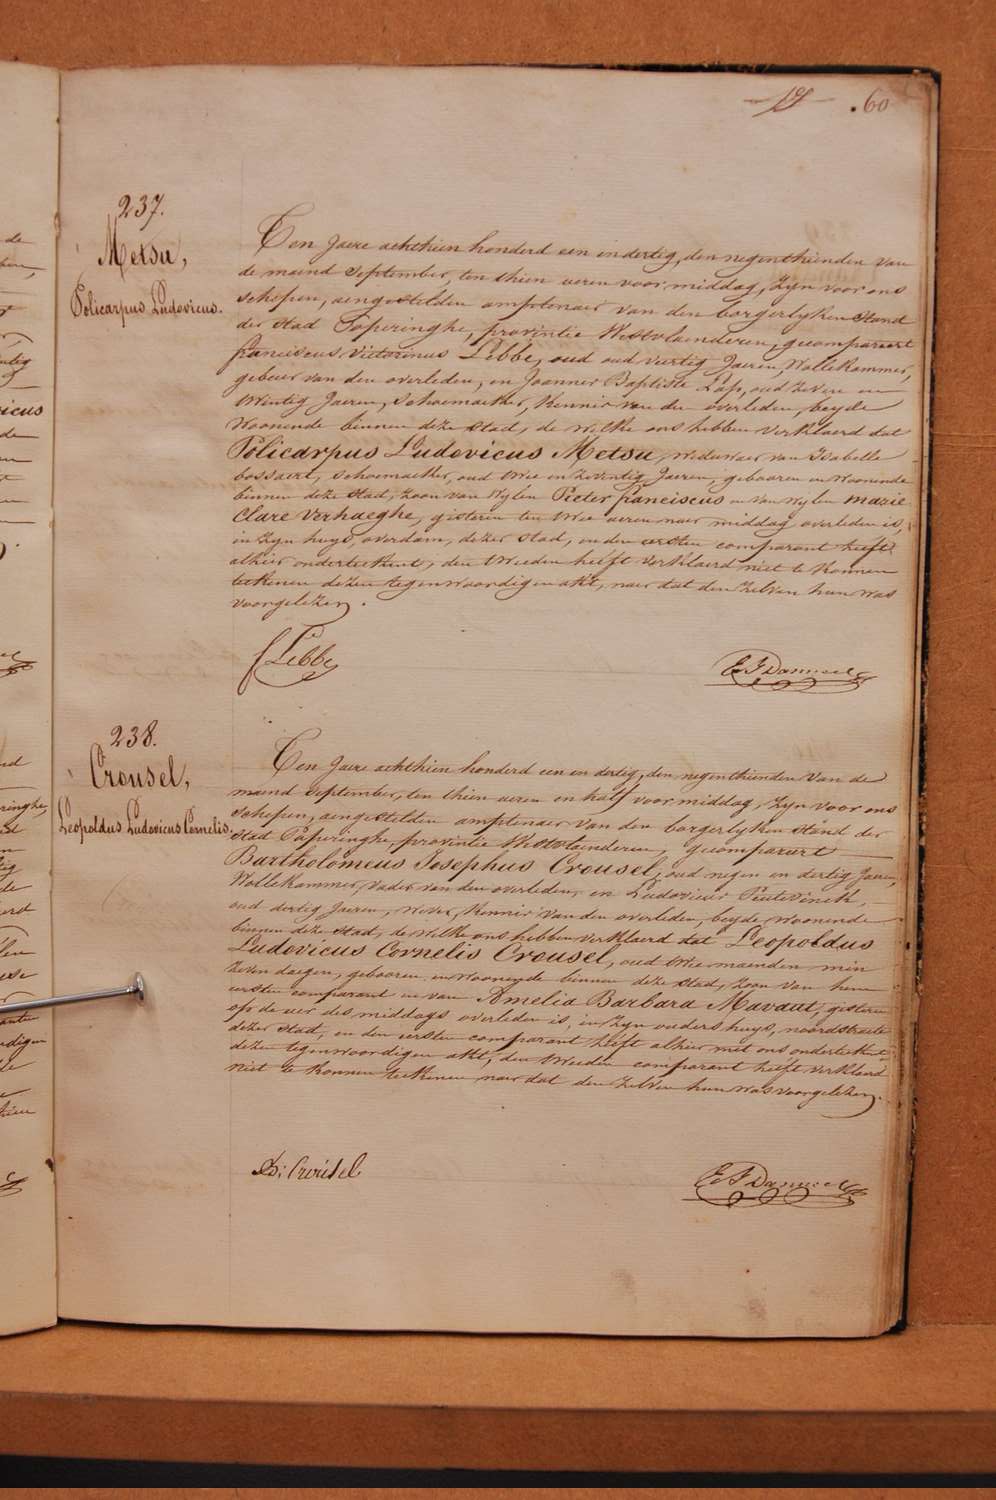 .60
237.
Metsu,
Policarpus Ludovicus.
Ten Jaere achthien honderd een en dertig, den negenthienden van
de maend September, ten thien ueren voor middag, Zyn voor ons
schepen, aengestelden amptenaer van den borgerlyken Stand
der stad Poperinghe, provintie Westvlaenderen, gecompareert
franciscus Victorinus Lebbe, oud oud viertig Jaeren, Wollekammer,
gebeur van den overleden, en Joannes Baptiste Lap, oud Zeven en
twintig Jaeren, schoemaeker, Kennis van den overleden, beyde
woonende binnen deze stad, de welke ons hebben verklaerd dat
Policarpus Ludovicus Metsu, weduwaer van Isabelle
bossaert, schoemaeker, oud twee en Zeventig Jaeren, gebooren en Woonende
binnen deze stad, Zoon van wylen Pieter franciscus en van Wylen marie
Clare Verhaeghe, gisteren ten twee ueren naer middag overleden is,
in Zyn huys, overdam, dezer stad, en den eersten comparant heeft
alhier onderteekent, den tweeden heeft verklaerd niet te konnen
teekenen dezen tegenwoordigen akt, naer dat den Zelven hun was
voorgelezen.
f Lebbe
238.
Crousel,
Leopoldus Ludovicus Cornelis.
Ten Jaere achthien honderd een en dertig, den negenthienden van de
maend September, ten thien ueren en half voor middag, Zyn voor ons
schepen, aengestelden amptenaer van den borgerlyken stand der
stad Poperinghe, provintie Westvlaenderen, gecompareert
Bartholomeus Josephus Crousel, oud negen en dertig Jaeren,
Wollekammer, vader van den overleden, en Ludovicus
oud dertig Jaeren, wever, Kennis van den overleden, beyde woonende
binnen deze stad, de welke ons hebben verklaerd dat Leopoldus
Ludovicus Cornelis Crousel, oud twee maenden min
Zeven daegen, gebooren en woonende binnen deze stad, Zoon van hem
eersten comparant en van Amelia Barbara Mavaut, gisteren
op de uer des middags overleden is, in Zyn ouders huys, noordstraete
dezer stad, en den eersten comparant heeft alhier met ons onderteekent
dezen tegenwoordigen akt, den tweeden comparant heeft verklaerd
niet te konnen teekenen naer dat den Zelven hun was voorgelezen.
B: Crousel